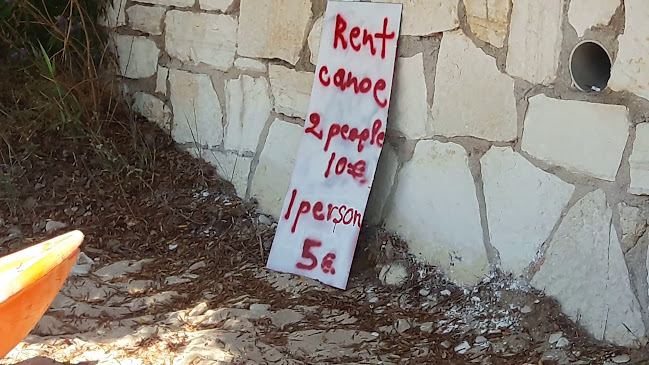 Rent
canoe
2 people
10€
1 person
5€